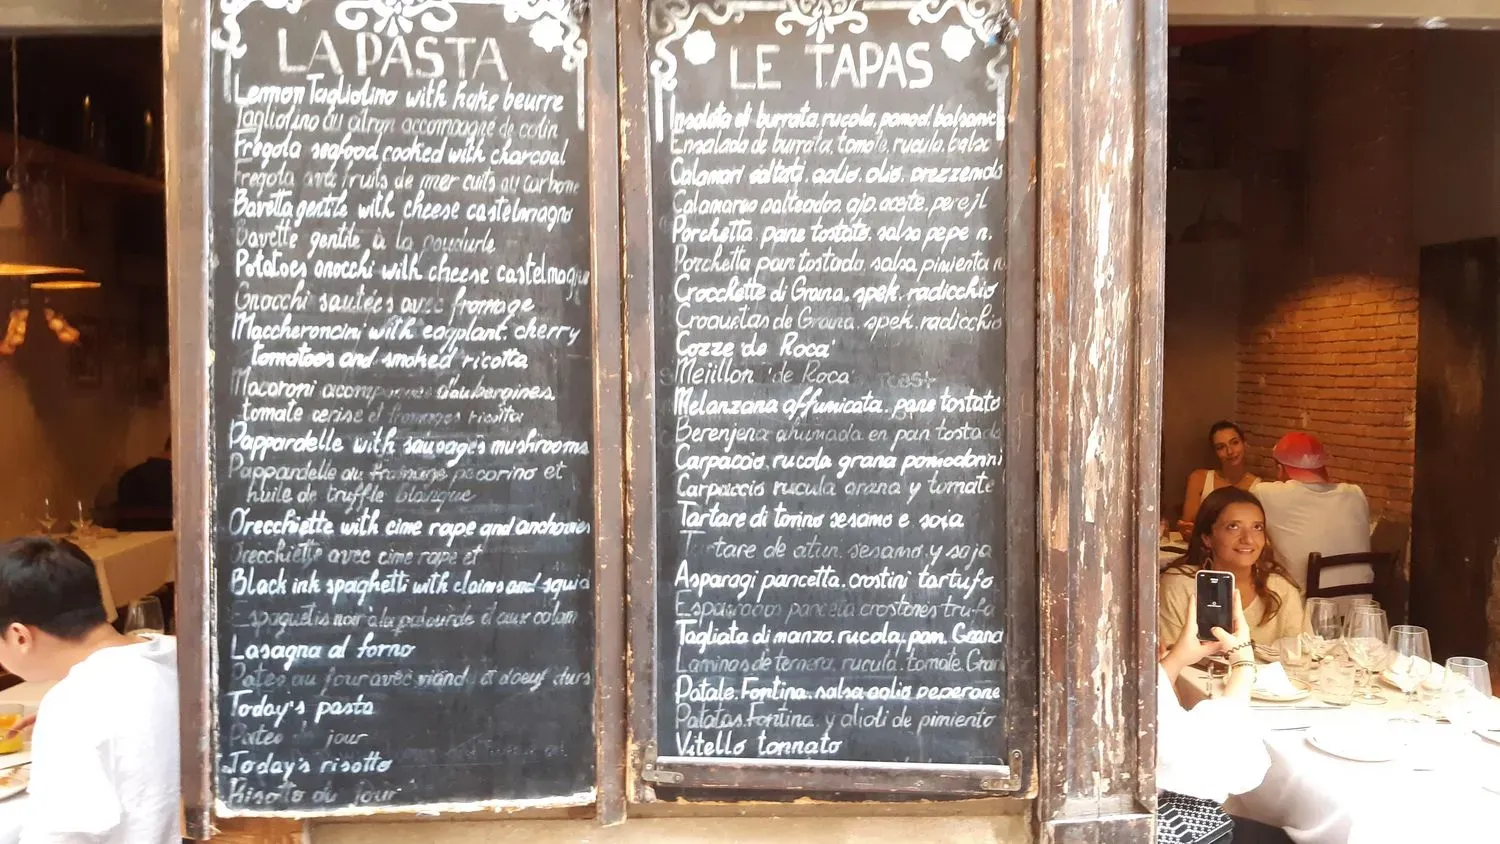 LA PASTA
Lemon Tagliolino with hake beurre
Tagliolino au citron accompagné de colin
Fregola seafood cooked with charcoal
Fregola ava fruils de mer cuits au carbone
Bavetta gentile with cheese castelmagno
Bavette gentile à la poudurle
Potatoes gnocchi with cheese castelmagn
Gnocchi sautées avec fromage
Maccheroncini with eggplant, cherry
tomatoes and smoked ricotta
Macaroni d'aubergines,
tomate cerise et fromages ricotta
Pappardelle with sausages mushrooms
Pappardelle au fromage pecorino et
huile de truffle blanque
Orecchiette with cime rape and anchovies
Orecchiette avec cime rape et
Black ink spaghetti with clams and squid
Espaguetis noir à la palourde et aux calam
Lasagna al forno
Pates au four avec viand et d'oeuf durs
Today's pasta
Pates jour
Today's risotto
Risotto du jour
LE TAPAS
Insalata di burrata, rucola, pomod. balsamic
Ensalada de burrata, tomate, rucula, balsa
Calamari saltati, aglio, olio, prezzemolo
Calamares salteados, ajo, aceite, perejil
Porchetta, pane tostato, salsa pepe n.
Porchetta pan tostado, salsa pimienta n
Crocchette di Grana, spek, radicchio
Croquetas de Grana, spek, radicchio
Cozze 'de Roca'
Mejillon 'de Roca'
Melanzana affumicata, pane tostato
Berenjena ahumada en pan tostado
Carpaccio, rucola grana pomodorini
Carpaccio rucula grana y tomate
Tartare di tonno sesamo e soia
Tartare de atun, sesamo y soja
Asparagi pancetta, crostini tartufo
Esparragos panceta crostones trufa
Tagliata di manzo, rucola, pom. Grana
Laminas de ternera, rucula, tomate, Gran
Patate, Fontina, salsa aglio peperone
Patatas, Fontina y alioli de pimiento
Vitello tonnato